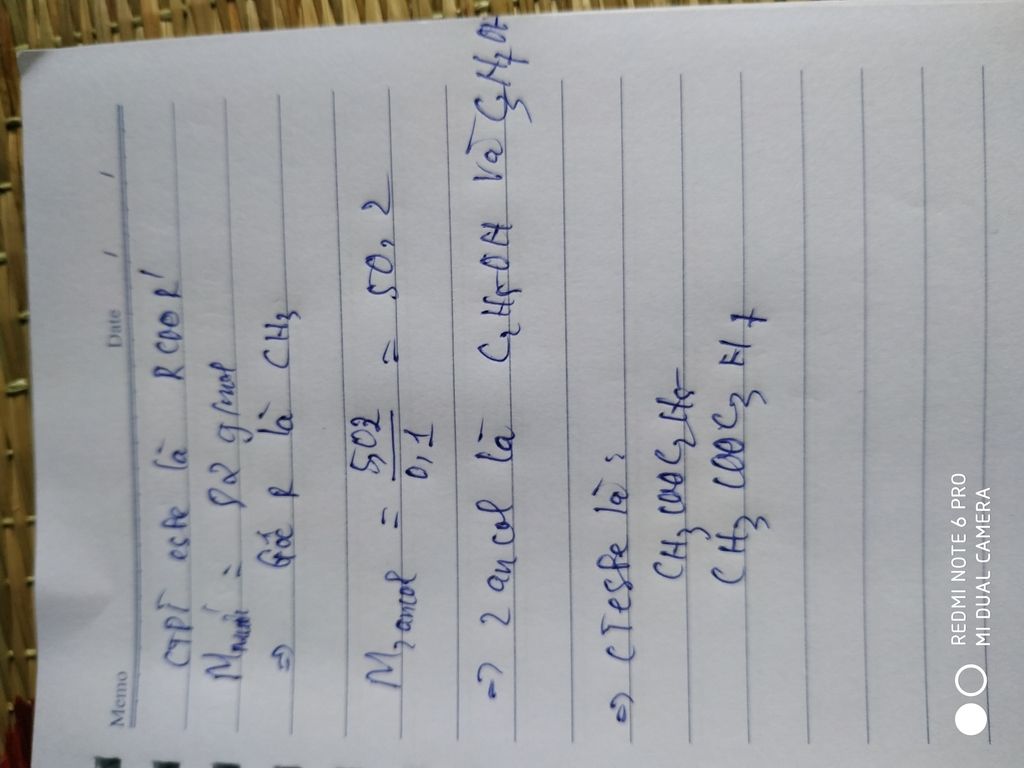 Memo Date / /
CTPT este là RCOOR'
M muối = 82 g/mol
=> Gốc R là CH3
M 2 ancol = 5,02 / 0,1 = 50,2
=> 2 ancol là C2H5OH và C3H7OH
=> CT este là:
CH3COOC2H5
CH3COOC3H7
REDMI NOTE 6 PRO
MI DUAL CAMERA